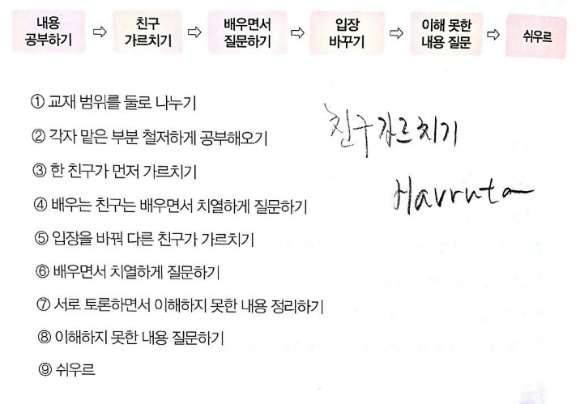 내용 공부하기 ⇨ 친구 가르치기 ⇨ 배우면서 질문하기 ⇨ 입장 바꾸기 ⇨ 이해 못한 내용 질문 ⇨ 쉬우르
① 교재 범위를 둘로 나누기
② 각자 맡은 부분 철저하게 공부해오기
③ 한 친구가 먼저 가르치기
④ 배우는 친구는 배우면서 치열하게 질문하기
⑤ 입장을 바꿔 다른 친구가 가르치기
⑥ 배우면서 치열하게 질문하기
⑦ 서로 토론하면서 이해하지 못한 내용 정리하기
⑧ 이해하지 못한 내용 질문하기
⑨ 쉬우르
친구가르치기
Havruta